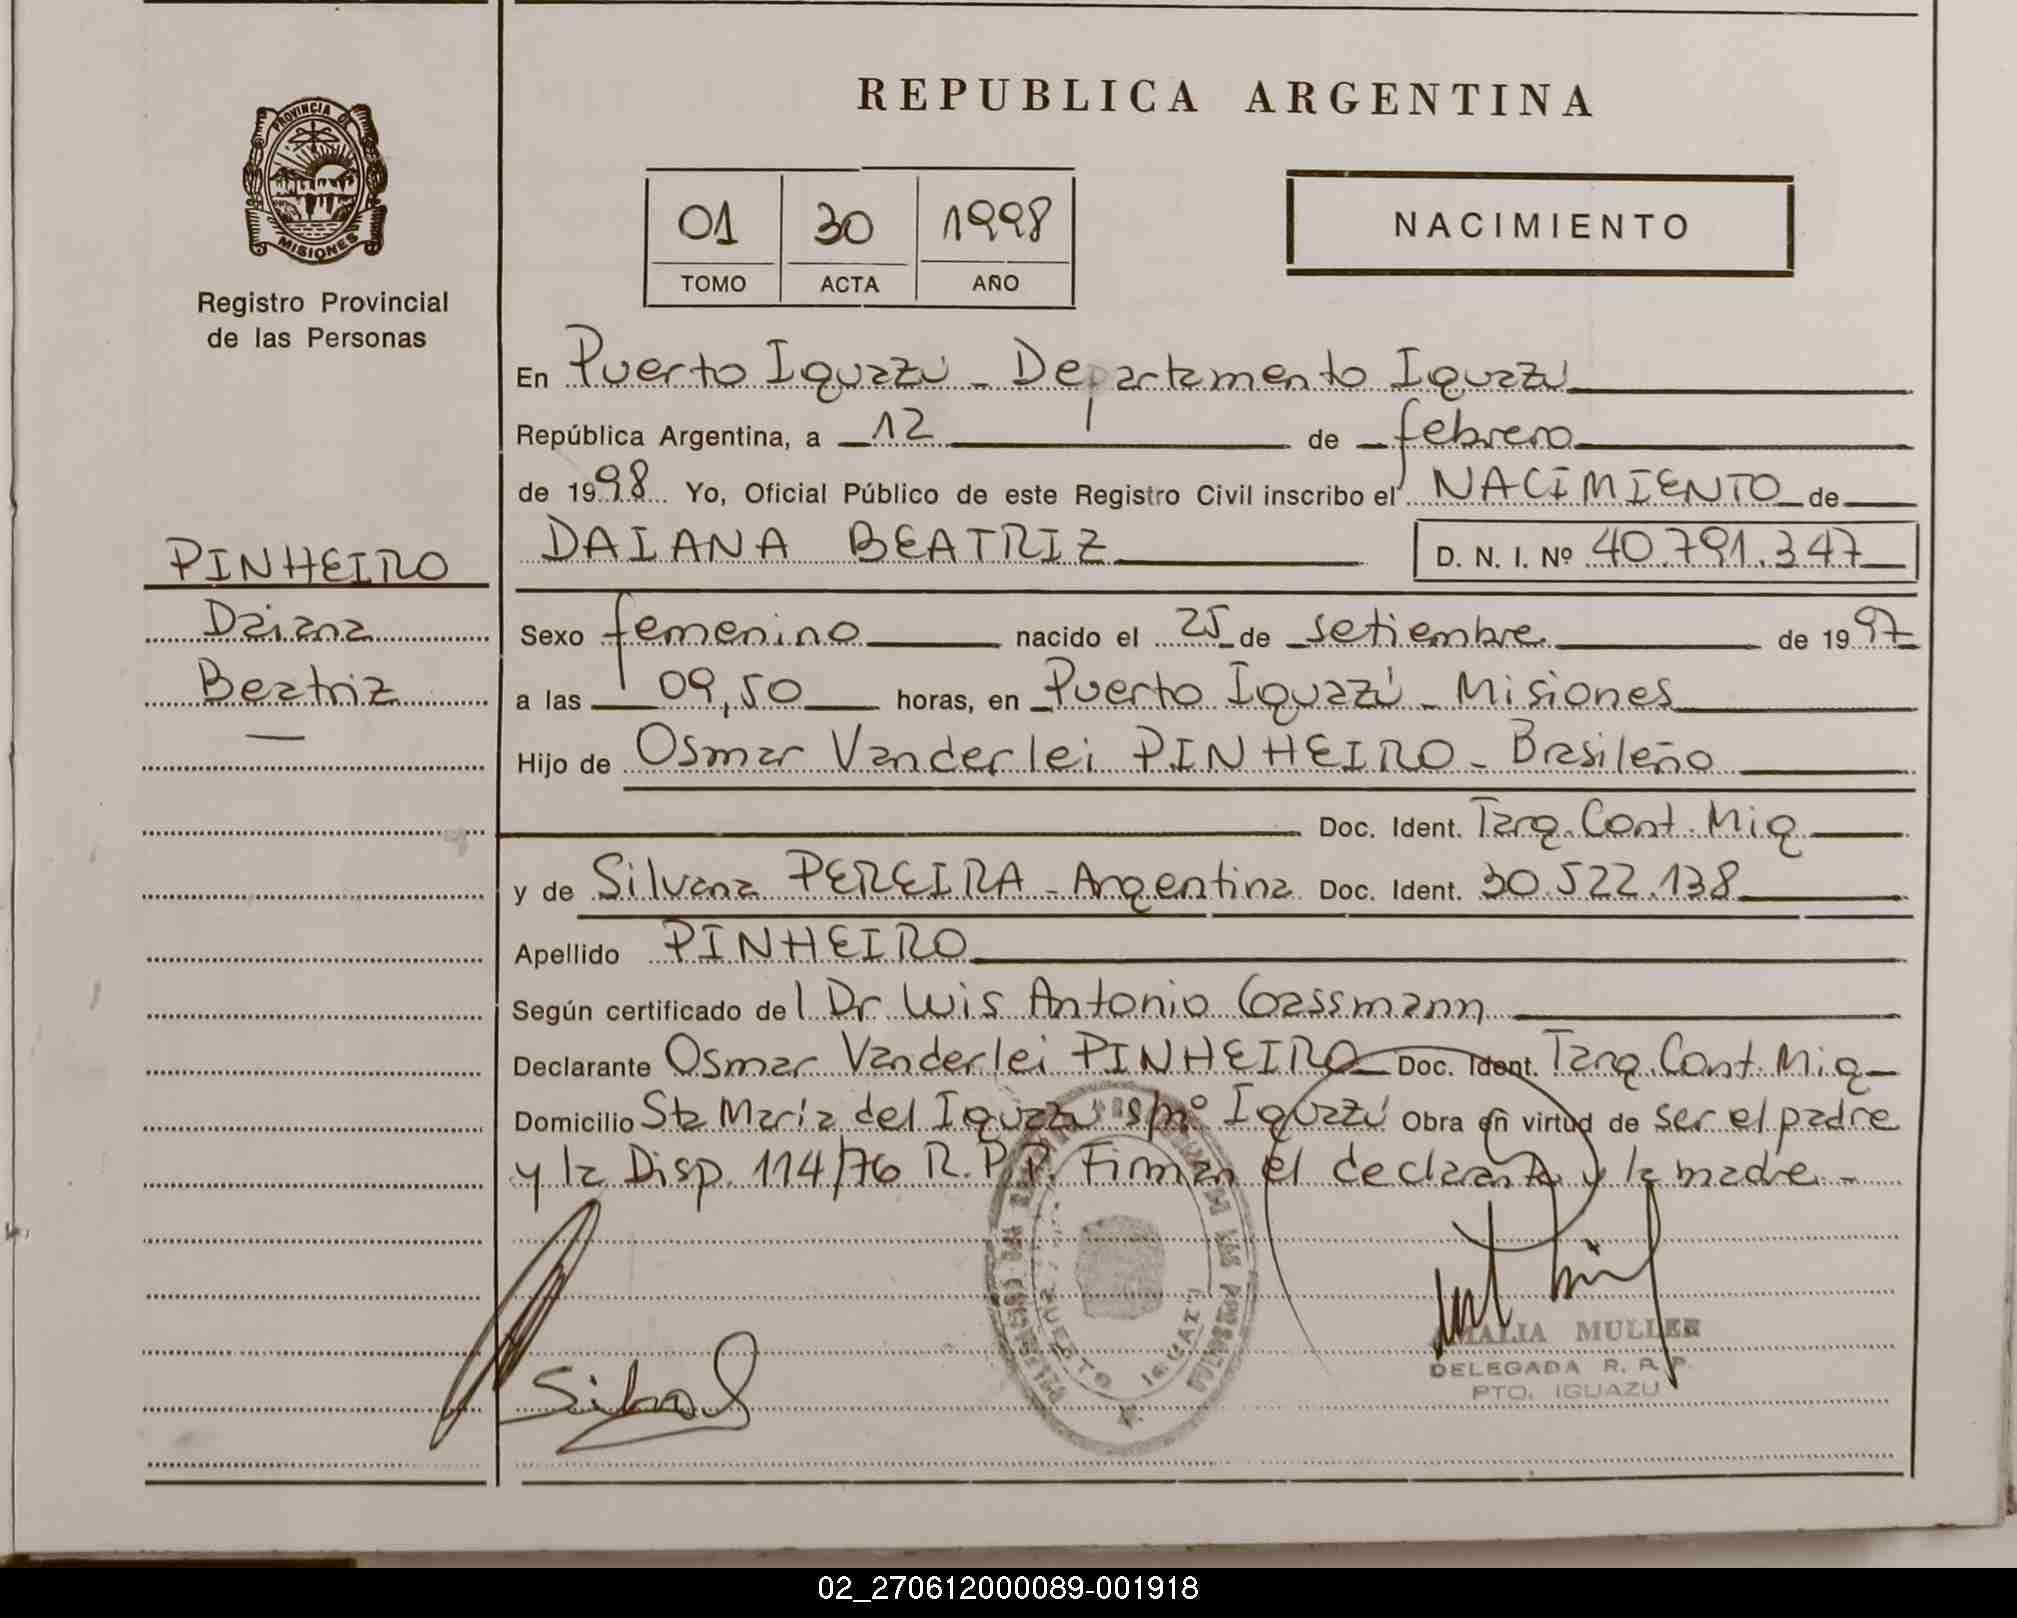 REPUBLICA ARGENTINA
PROVINCIA DE
MISIONES
Registro Provincial
de las Personas
01 30 1998
TOMO ACTA AÑO
NACIMIENTO
En Puerto Iguazú - Departamento Iguazú
República Argentina, a 12 de febrero
de 1998 Yo, Oficial Público de este Registro Civil inscribo el NACIMIENTO de
PINHEIRO
Daiana
Beatriz
DAIANA BEATRIZ D. N. I. Nº 40.791.347
Sexo femenino nacido el 25 de setiembre de 1997
a las 09,50 horas, en Puerto Iguazú - Misiones
Hijo de Osmar Vanderlei PINHEIRO - Brasileño
Doc. Ident. Targ. Cont. Mig
y de Silvana PEREIRA - Argentina Doc. Ident. 30.522.138
Apellido PINHEIRO
Según certificado del Dr Luis Antonio Gassmann
Declarante Osmar Vanderlei PINHEIRO Doc. Ident. Targ. Cont. Mig-
Domicilio Sta María del Iguazú s/nº Iguazú Obra en virtud de ser el padre
y la Disp. 114/76 R.P.P. Firman el declarante y la madre. -
PUERTO IGUAZU
AMALIA MULLER
DELEGADA R. P. P.
PTO. IGUAZU
02_270612000089-001918